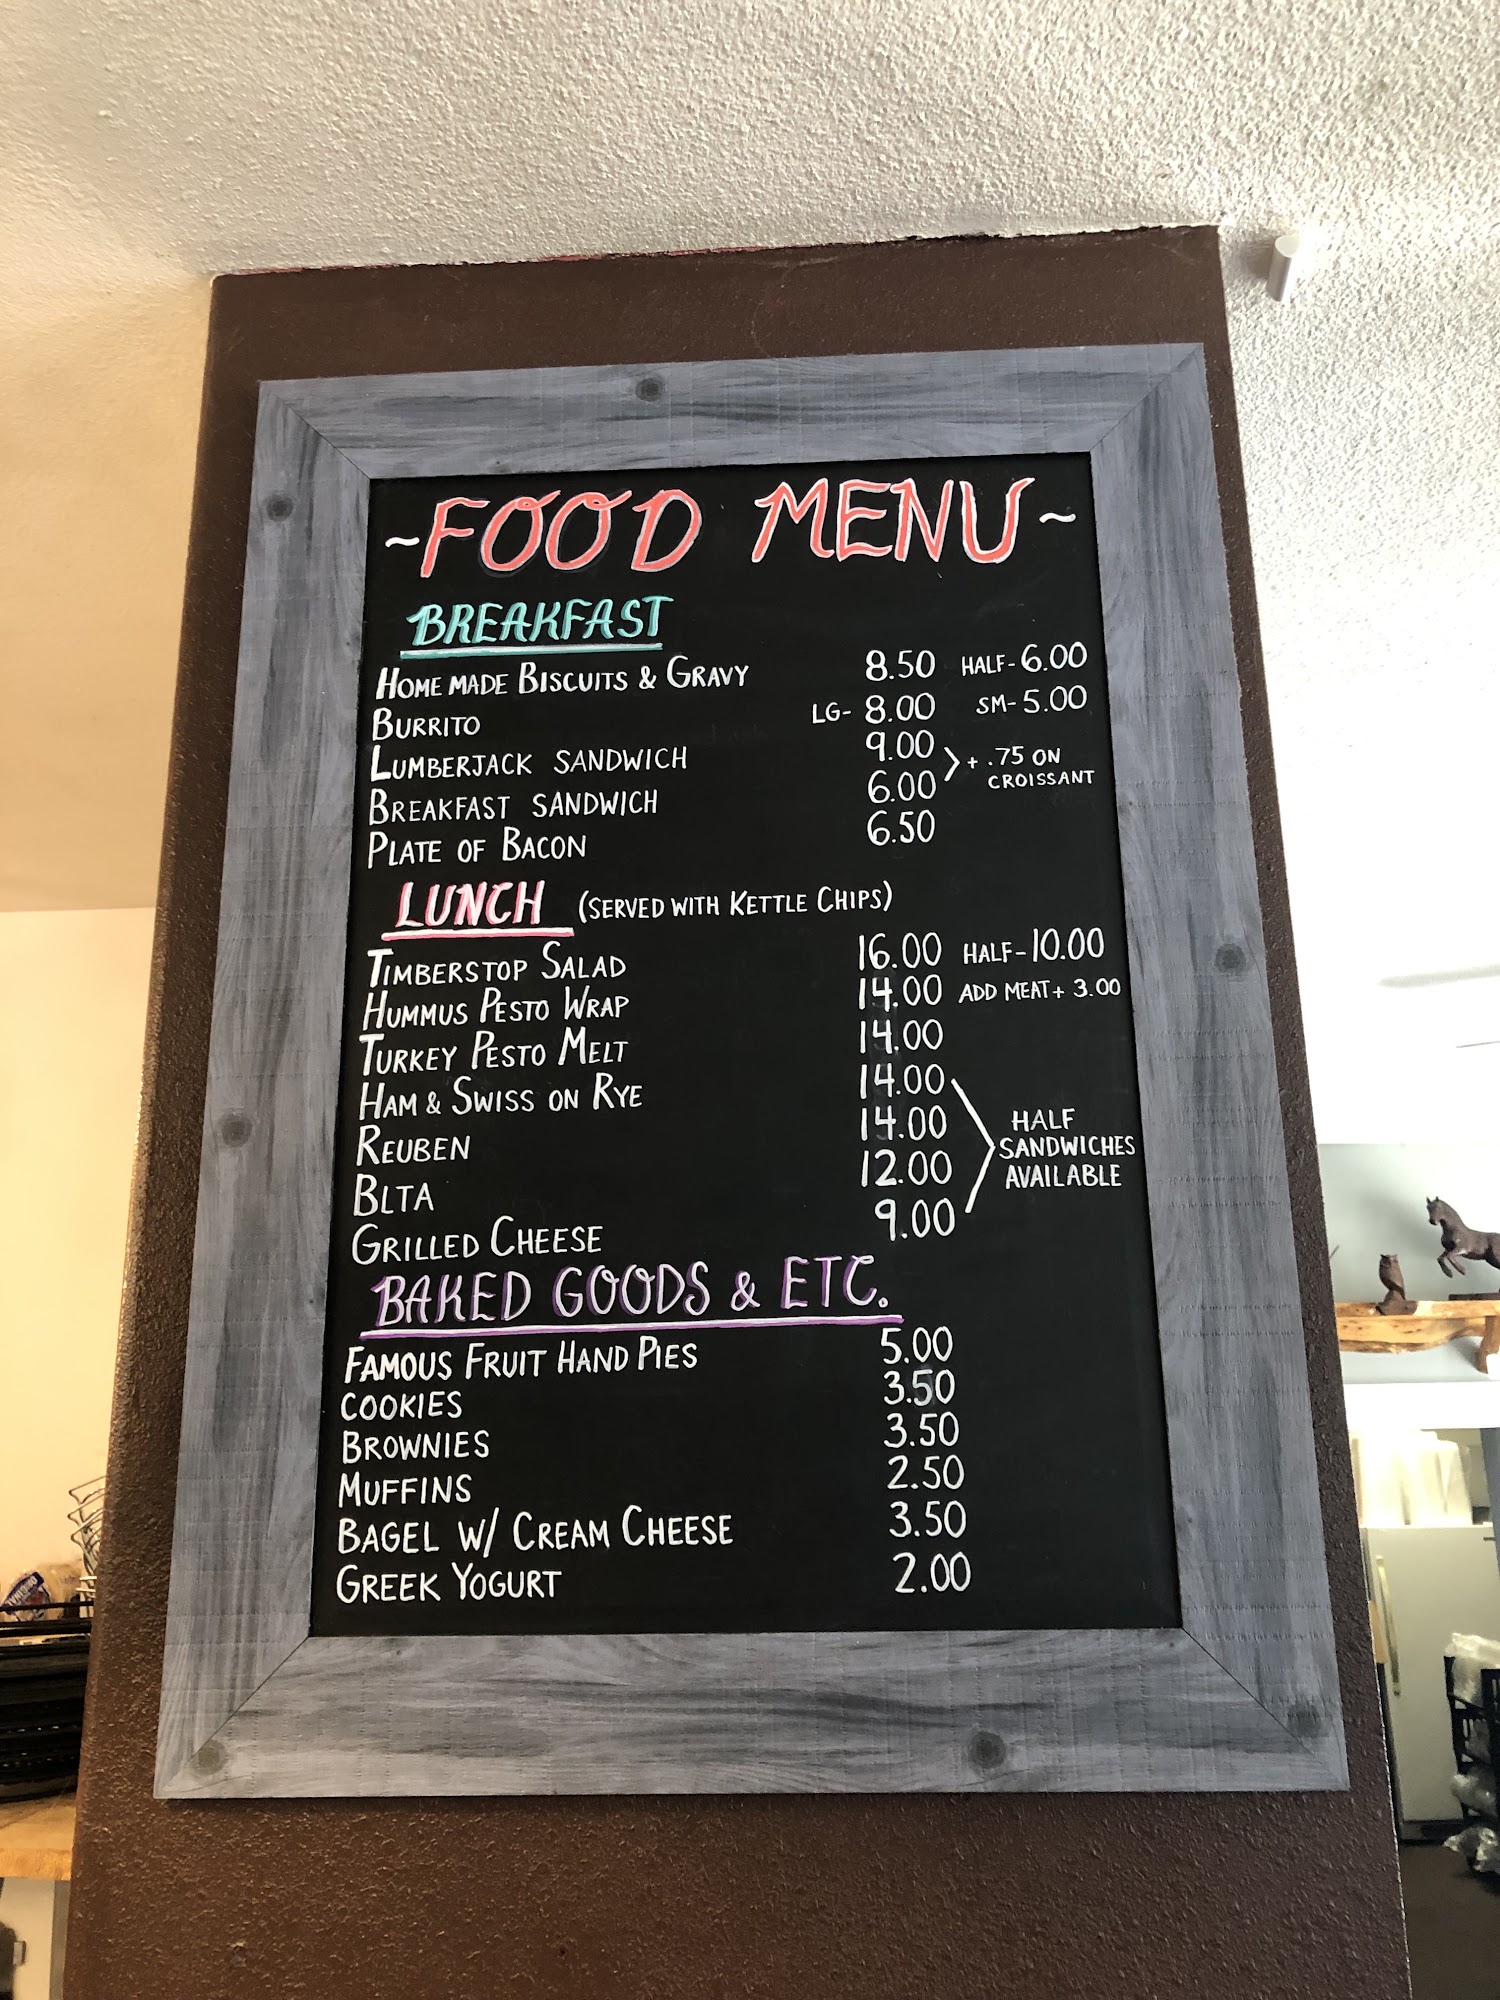 ~FOOD MENU~
BREAKFAST
HOME MADE BISCUITS & GRAVY 8.50 HALF- 6.00
BURRITO LG- 8.00 SM- 5.00
LUMBERJACK SANDWICH 9.00 + .75 ON
BREAKFAST SANDWICH 6.00 CROISSANT
PLATE OF BACON 6.50
LUNCH (SERVED WITH KETTLE CHIPS)
TIMBERSTOP SALAD 16.00 HALF- 10.00
HUMMUS PESTO WRAP 14.00 ADD MEAT + 3.00
TURKEY PESTO MELT 14.00
HAM & SWISS ON RYE 14.00 HALF
REUBEN 14.00 SANDWICHES
BLTA 12.00 AVAILABLE
GRILLED CHEESE 9.00
BAKED GOODS & ETC.
FAMOUS FRUIT HAND PIES 5.00
COOKIES 3.50
BROWNIES 3.50
MUFFINS 2.50
BAGEL W/ CREAM CHEESE 3.50
GREEK YOGURT 2.00